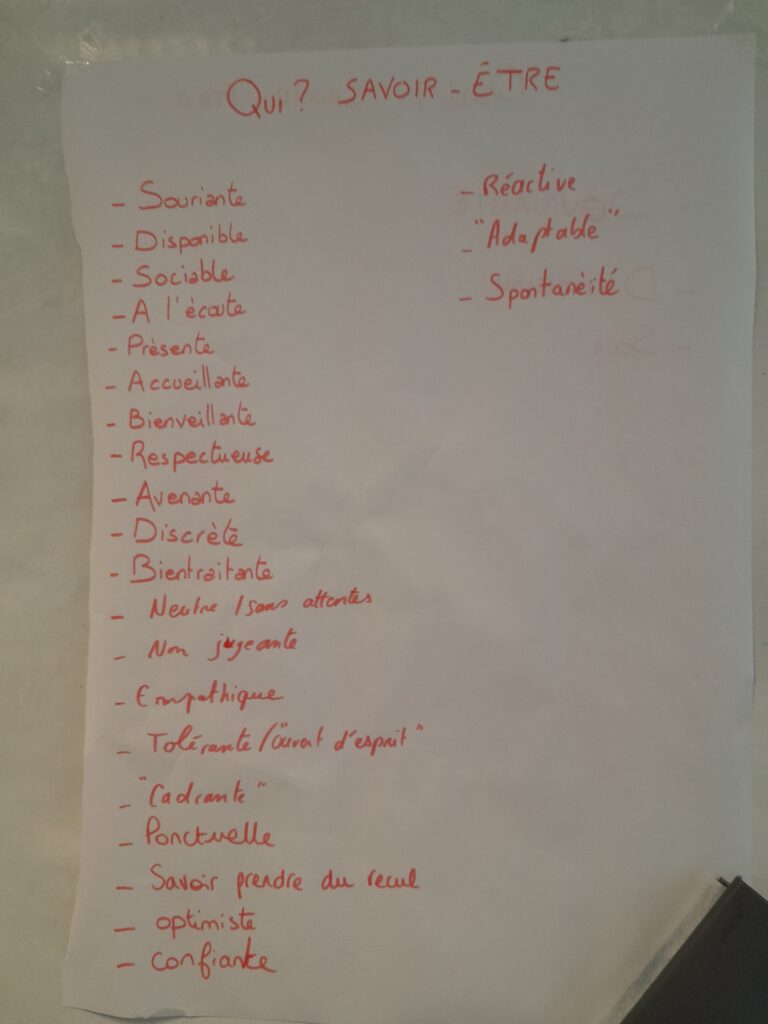 QUI? SAVOIR - ÊTRE
- Souriante
- Disponible
- Sociable
- A l'ècoute
- Prèsente
- Accueillante
- Bienveillante
- Respectueuse
- Avenante
- Discrète
- Bientraitante
- Neutre / sans attentes
- Non jugeante
- Empathique
- Tolérante / "ouvert d'esprit"
- "Cadrante"
- Ponctuelle
- Savoir prendre du recul
- optimiste
- confiante
- Réactive
- "Adaptable"
- Spontanèité